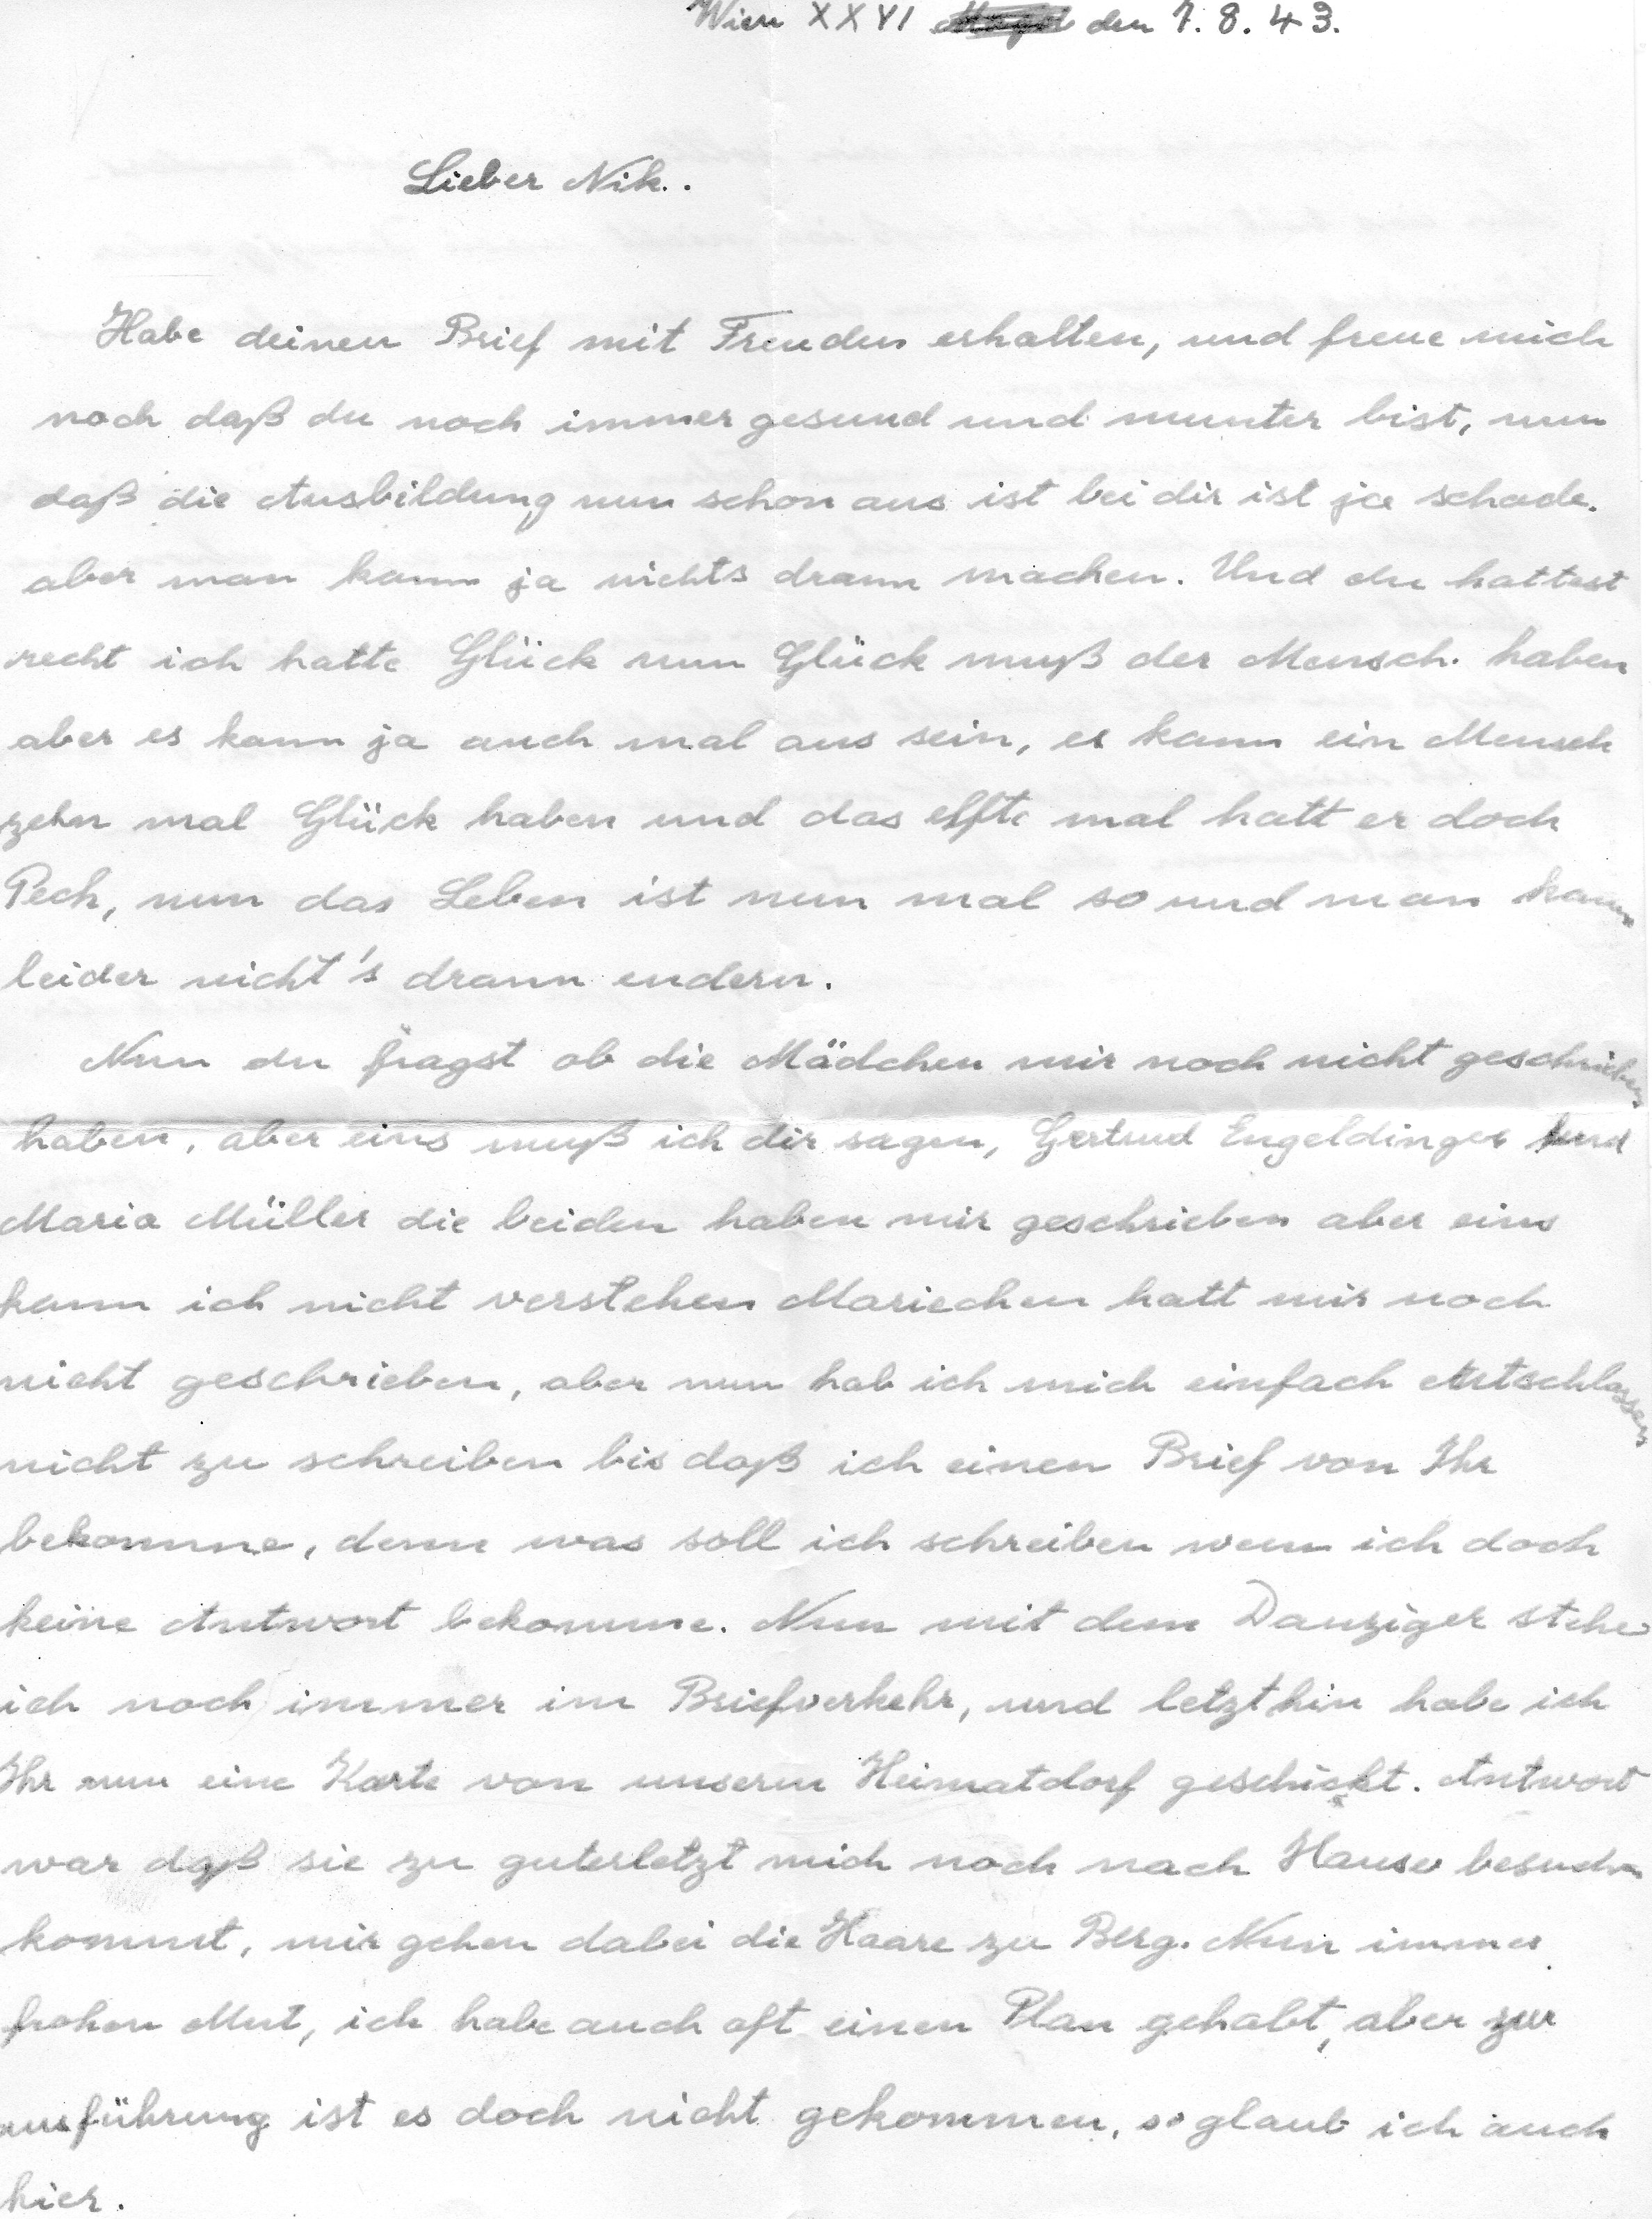 Wien XXVI den 1. 8. 43.
Lieber Nik..
Habe deinen Brief mit Freuden erhalten, und freue mich
noch daß du noch immer gesund und munter bist, nun
daß die Ausbildung nun schon aus ist bei dir ist ja schade.
aber man kann ja nichts drann machen. Und du hattest
recht ich hatte Glück nun Glück muß der Mensch. haben
aber es kann ja auch mal aus sein, es kann ein Mensch
zehn mal Glück haben und das elfte mal hatt er doch
Pech, nun das Leben ist nun mal so und man kann
leider nicht's drann endern.
Nun du fragst ob die Mädchen mir noch nicht geschrieben
haben, aber eins muß ich dir sagen, Gertrud Engeldinger und
Maria Müller die beiden haben mir geschrieben aber eins
kann ich nicht verstehen Mariechen hatt mir noch
nicht geschrieben, aber nun hab ich mich einfach Antschlossen
nicht zu schreiben bis daß ich einen Brief von Ihr
bekomme, denn was soll ich schreiben wenn ich doch
keine Antwort bekomme. Nun mit dem Danziger stehe
ich noch immer im Briefverkehr, und letzthin habe ich
Ihr nun eine Karte von unserm Heimatdorf geschickt. Antwort
war daß sie zu guterletzt mich noch nach Hause besuchen
kommt, mir gehen dabei die Haare zu Berg. Nun immer
frohen Mut, ich habe auch oft einen Plan gehabt, aber zur
ausführung ist es doch nicht gekommen, so glaub ich auch
hier.